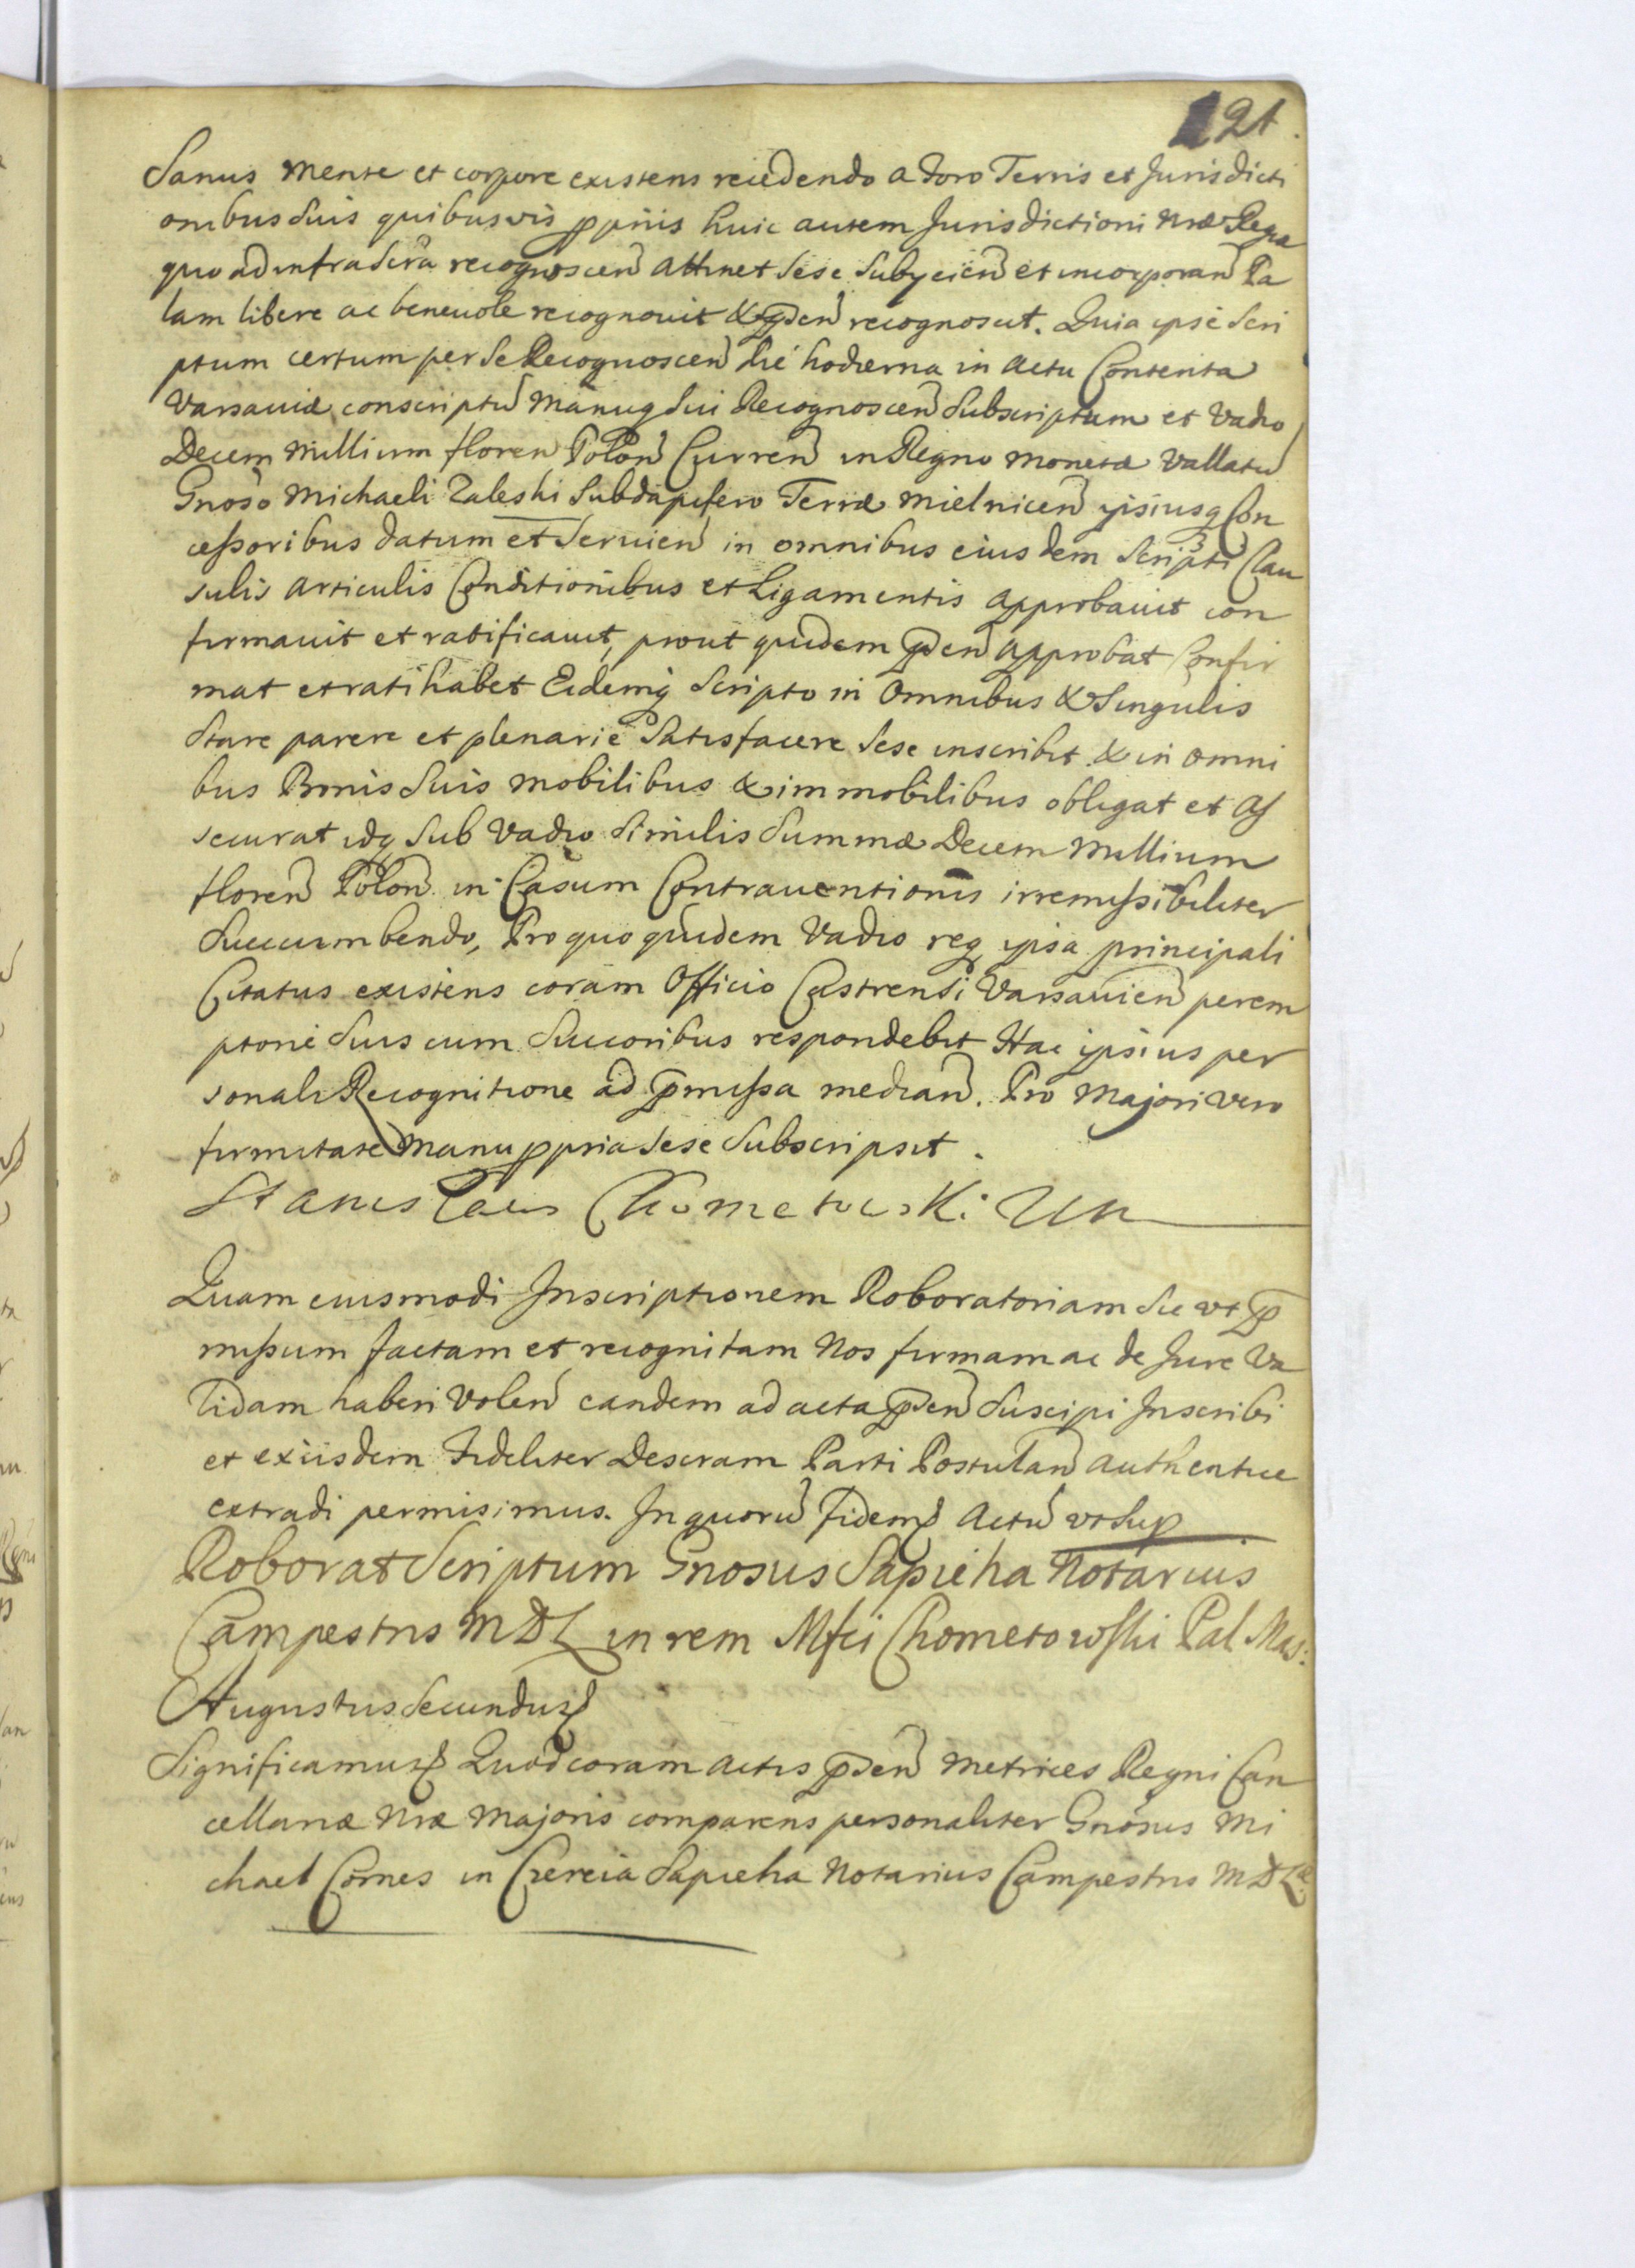 121.
Sanus mente et corpore existens recedendo a Foro Terris et Jurisdicti
onibus suis quibusvis ppriis huic autem Jurisdictioni Nræ Regiæ
quo ad infrascra recognoscen attinet sese subycien et incorporan Pa
lam libere ac beneuole recognouit & pnsen recognoscit. Quia ipse Scri
ptum certum per se Recognoscen die hodierna in actu Contenta
Varsauiæ conscriptu manuq sui Recognoscen subscriptum et vadio
Decem millium floren Polon Curren in Regno monetæ vallatu
Gnoso Michaeli Zaleski Subdapifero Terræ Mielnicen ipsiusq Con
cessoribus datum et seruien in omnibus eiusdem Scripti Clau
sulis articulis Conditionibus et Ligamentis approbauit con
firmauit et ratificauit, prout quidem pnsen approbat Confir
mat et ratihabet Eidemq Scripto in omnibus & singulis
stare parere et plenarie satisfacere sese inscribit & in omni
bus Bonis suis mobilibus & immobilibus obligat et as
securat idq sub vadio similis summæ Decem millium
floren Polon in Casum Contrauentionis irremissibiliter
succumbendo, Pro quo quidem vadio req ipsa principali
Citatus existens coram Officio Castrensi Varsauien perem
ptorie suis cum succoribus respondebit Hac ipsius per
sonali Recognitione ad pmissa median. Pro Majori vero
firmitate manu ppria sese subscripsit.
Stanislaus Chometowski
Quam eiusmodi Inscriptionem Roboratoriam sic vt p
missum factam et recognitam Nos firmam ac de Jure va
lidam haberi volen eandem ad acta pnsen suscipi Inscribi
et exiisdem Fideliter Descram Parti Postulan authentice
extradi permisimus. In quoru Fidem Actu vt sup
Roborat Scriptum Gnosus Sapieha Notarius
Campestris M D L in rem Mfci Chometowski Pal Mas:
Augustus Secundus
Significamus Quod coram actis pnsen Metrices Regni Can
cellariæ Nræ Majoris comparens personaliter Gnosus Mi
chael Comes in Czereia Sapieha Notarius Campestris M D L